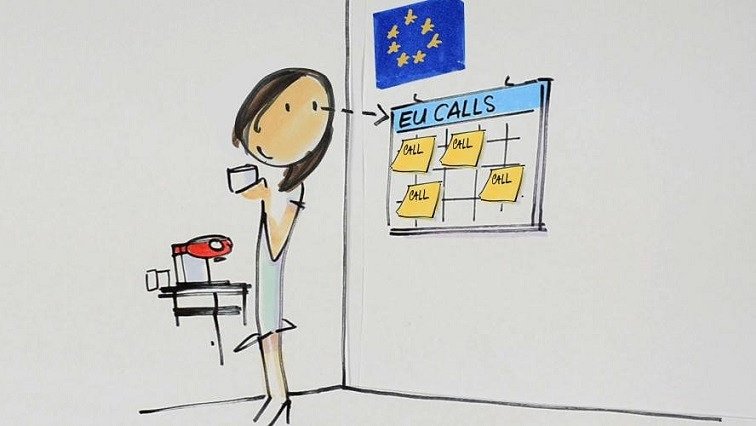 EU CALLS
CALL
CALL
CALL
CALL